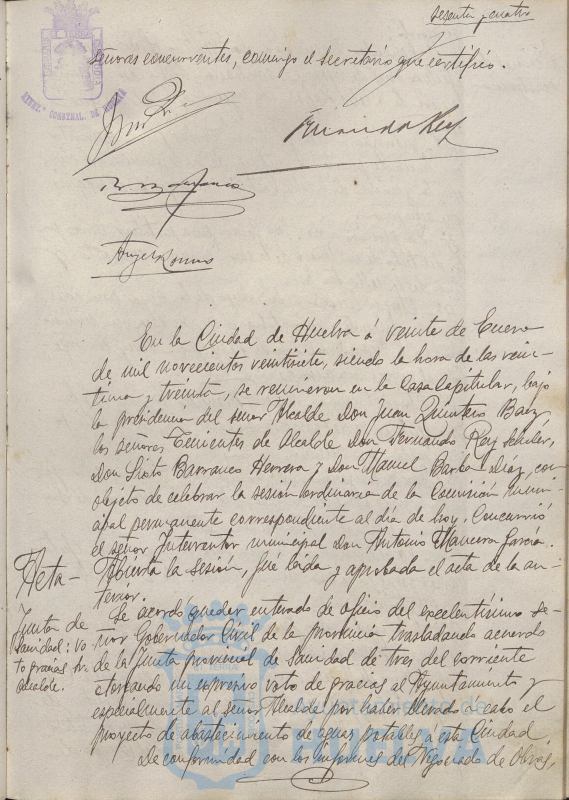 sesenta y cuatro
AYUNT.º CONSTNAL. DE HUELVA
Señores concurrentes, conmigo el Secretario que certifico.
Fernando Rey
Angel Romero
En la Ciudad de Huelva á veinte de Enero
de mil novecientos veintisiete, siendo la hora de las vein-
tiuna y treinta, se reunieron en la Casa Capitular, bajo
la presidencia del señor Alcalde Don Juan Quintero Baez
los señores Tenientes de Alcalde Don Fernando Rey
Don Sixto Barranco Herrera y Don Manuel Barba Díaz, con
objeto de celebrar la sesión ordinaria de la Comisión muni-
cipal permanente correspondiente al día de hoy. Concurrió
el señor Interventor municipal Don Antonio Manuera García.
Acta-
Abierta la sesión, fué leida y aprobada el acta de la an-
terior.
Junta de
Sanidad: vo
to gracias Sr.
Alcalde.
Se acordó quedar enterado de oficio del excelentísimo se-
ñor Gobernador Civil de la provincia trasladando acuerdo
de la Junta provincial de Sanidad de tres del corriente
otorgando un expresivo voto de gracias al Ayuntamiento y
especialmente al señor Alcalde por haber llevado a cabo el
proyecto de abastecimiento de aguas potables a esta Ciudad
De conformidad con los informes del Negociado de Obras,
AYUNTAMIENTO DE
HUELVA